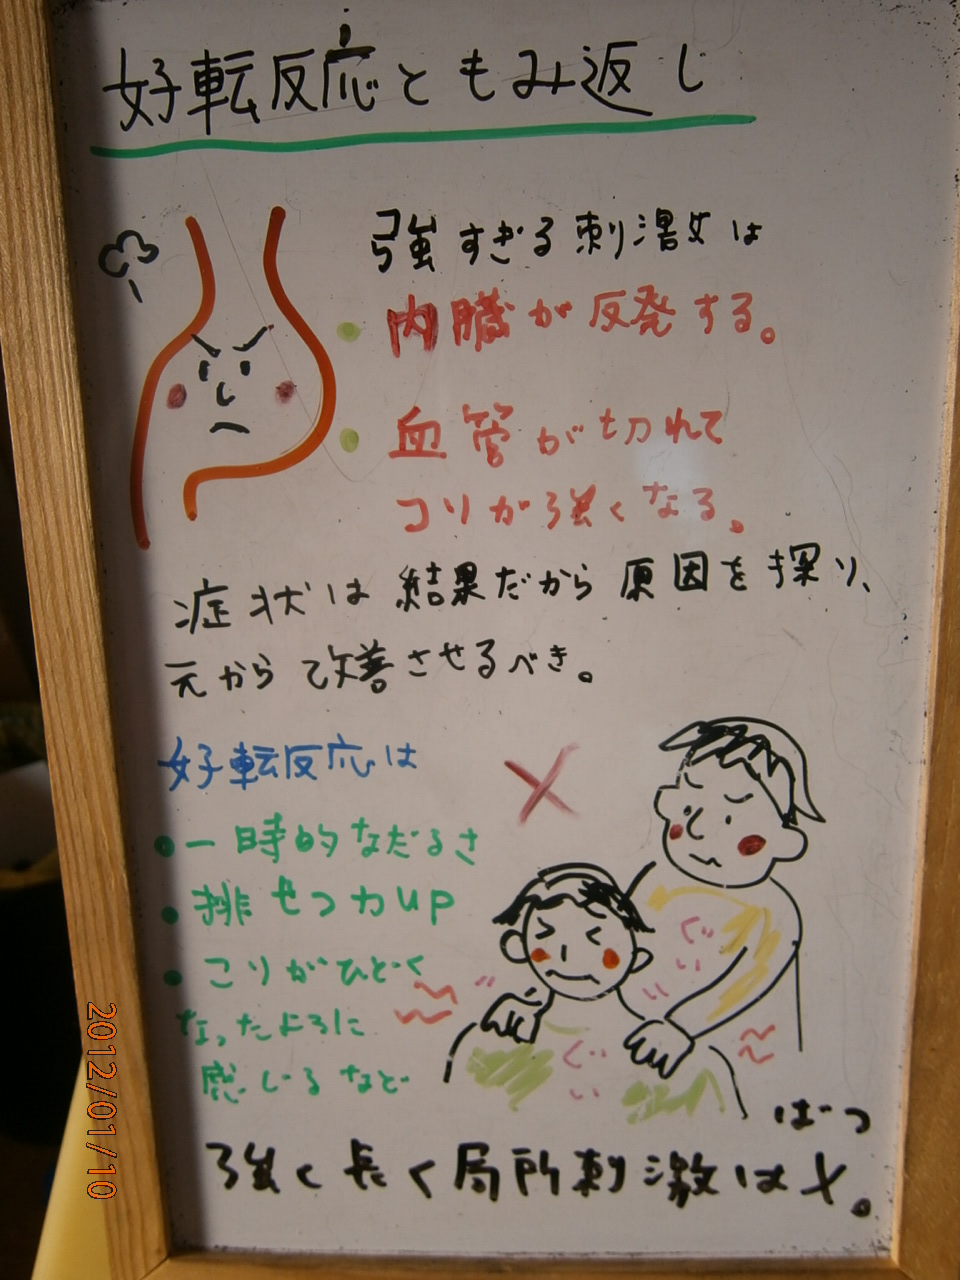 好転反応ともみ返し
強すぎる刺激は
・内臓が反発する。
・血管が切れて
コリが強くなる。
症状は結果だから原因を探り、
元から改善させるべき。
好転反応は
・一時的なだるさ
・排せつ力UP
・こりがひどく
なったように
感じるなど
ぐぃ
ぐぃ
ばつ
強く長く局所刺激は×。
2012/01/10